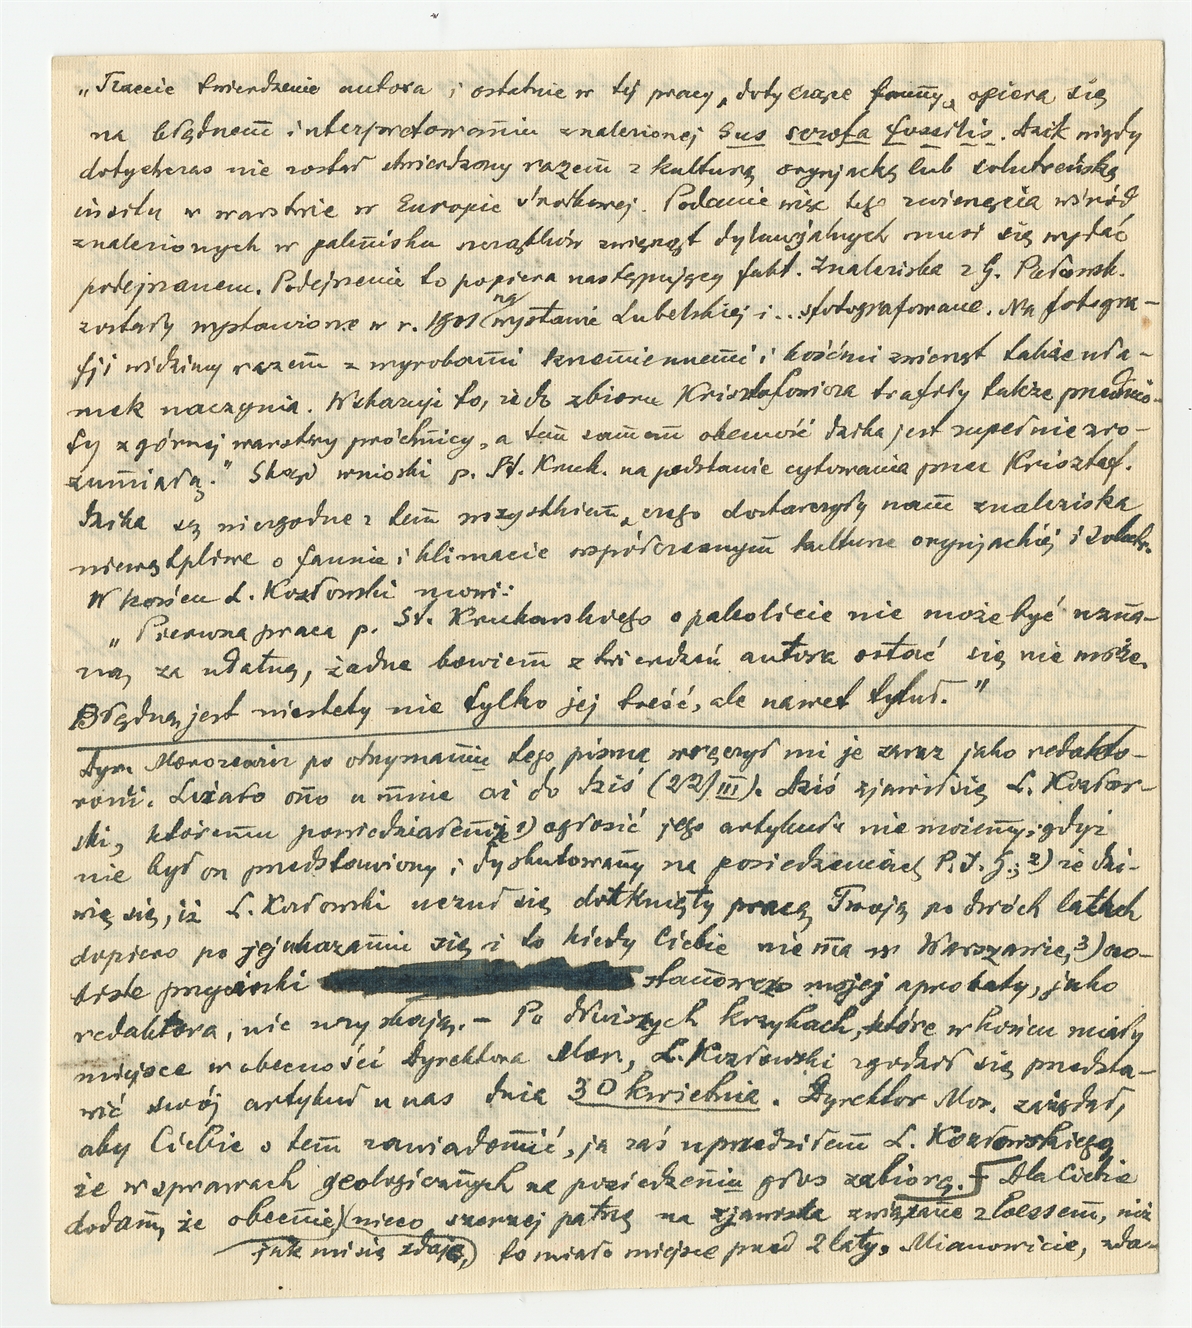 „Trzecie twierdzenie autora i ostatnie w tej pracy, dotyczące fauny, opiera się
na błędnem interpretowaniu znalezionej Sus scrofa fossilis. Dzik nigdy
dotychczas nie został stwierdzony razem z kulturą oryniacką lub solutreńską
in situ w warstwie w Europie środkowej. Podanie więc tego zwierzęcia wśród
znalezionych w palenisku szczątków zwierząt dyluwjalnych musi się wydać
podejrzanem. Podejrzenie to popiera następujący fakt. Znaleziska z G. Puławsk.
zostały wystawione w r. 1901 na wystawie Lubelskiej i... sfotografowane. Na fotogra-
fji widzimy razem z wyrobami krzemiennemi i kośćmi zwierząt także uła-
mek naczynia. Wskazuje to, że do zbioru Krisztafowicza trafiły także przedmio-
ty z górnej warstwy próchnicy, a tem samem obecność dzika jest zupełnie zro-
zumiałą.” Skąd wnioski p. St. Kruk. na podstawie cytowania przez Krisztof.
dzika są niezgodne z tem wszystkiem, czego dostarczyły nam znaleziska
niewątpliwe o faunie i klimacie współczesnym kulturze oryniackiej i Solutr.
W końcu L. Kozłowski mówi:
„Pierwsza praca p. St. Krukowskiego o paleolicie nie może być uzna-
ną za udatną, żadne bowiem z twierdzeń autora ostać się nie może.
Błędną jest niestety nie tylko jej treść, ale nawet tytuł.”
Dyr. Morozewicz po otrzymaniu tego pisma wręczył mi je zaraz jako redakto-
rowi. Leżało ono u mnie aż do dziś (22/III). Dziś zjawił się L. Kozłow-
ski, któremu powiedziałem, że 1) ogłosić jego artykułu nie możemy, gdyż
nie był on przedstawiony i dyskutowany na posiedzeniach P.I.G.; 2) że dzi-
wię się, iż L. Kozłowski uczuł się dotknięty pracą Twoją po dwóch latach
dopiero po jej ukazaniu się i to kiedy Ciebie nie ma w Warszawie, 3) oso-
biste przycinki stanowczo mojej aprobaty, jako
redaktora, nie uzyskają. – Po dłuższych krzykach, które w końcu miały
miejsce w obecności Dyrektora Mor., L. Kozłowski zgodził się przedsta-
wić swój artykuł u nas dnia 30 kwietnia. Dyrektor Mor. zażądał,
aby Ciebie o tem zawiadomić, ja zaś uprzedziłem L. Kozłowskiego
że w sprawach geologicznych na posiedzeniu głos zabiorę. – Dla Ciebie
dodam, że obecnie (nieco szerzej patrzę na zjawiska związane z loessem, niż
jak mi się zdaje,) to miało miejsce przed 2 laty. Mianowicie, zda-